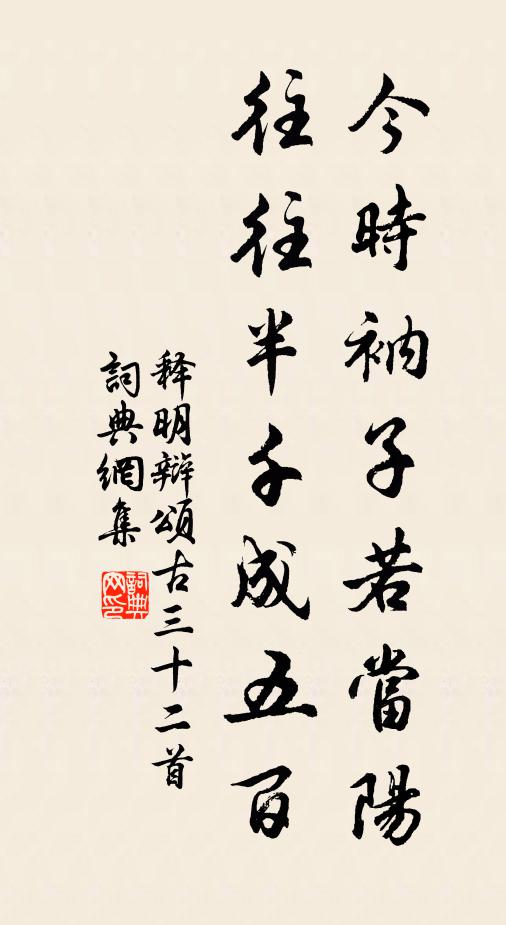 今時衲子若當陽
往往半千成五百
释明辯頌古三十二首
詞典網集
詞典网印